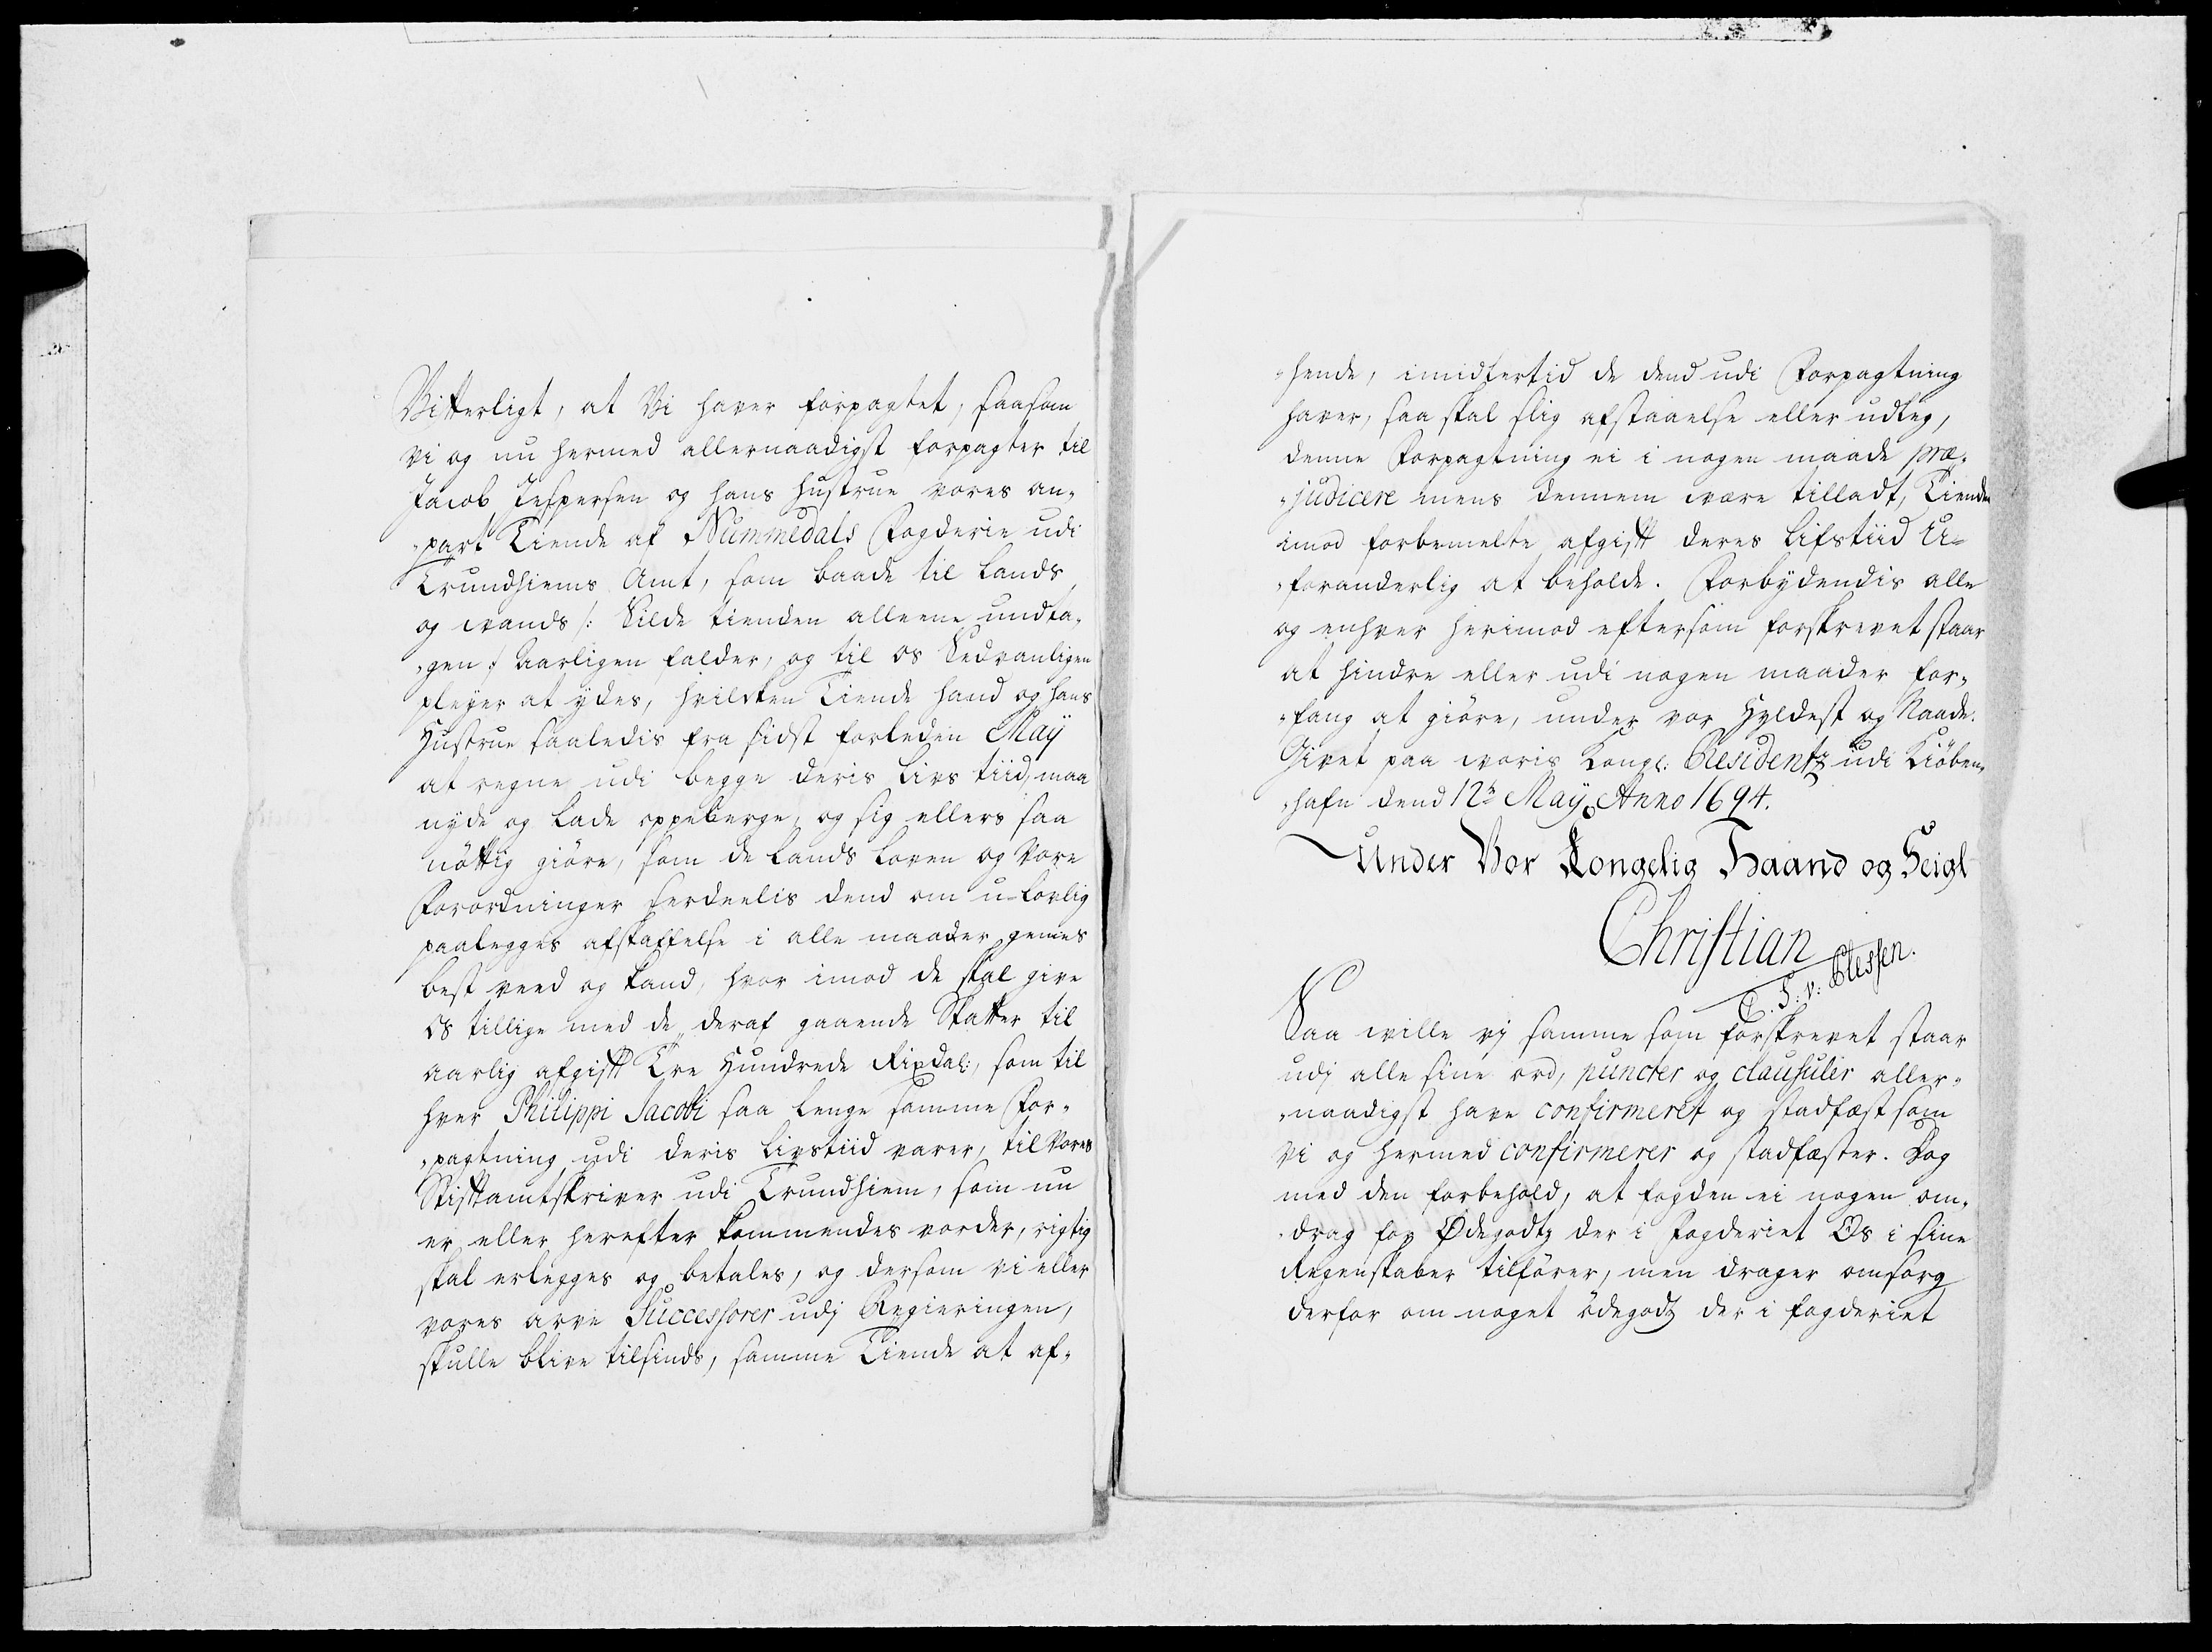 Vitterligt, at Vi haver forpagtet, saasom
vi og nu hermed allernaadigst forpagter til
Jacob Jespersen og hans Hustrue vores an-
-part Tiende af Nummedals Fogderie udi
Trundhiems Amt, som baade til Lands
og vands /: Silde tienden alleene undta-
-gen :/ Aarligen falder, og til os Sedvanligen
pleyer at ydes, hvilken Tiende hand og hans
Hustrue saaledis fra sidst forleden Maÿ
at regne udi begge deris Livs tiid, maa
nyde og lade oppeberge, og sig ellers saa
nöttig giöre, som de Lands Loven og Vore
Forordninger serdeelis dend om u-lovlig
paaleggs afskaffelse i alle maader gemes
best veed og kand, hvor imod de skal give
OS tillige med de deraf gaaende Skatter til
aarlig afgift Tre Hundrede Rixdal:, som til
hver Philippi Jacobi saa lenge samme For-
-pagtning udi deris Livstiid varer, til Vores
Stiftamtskriver udi Trundhiem, som nu
er eller herefter kommendes vorder, rigtig
skal erlegges og betales, og dersom vi eller
vores arve Successorer udj Regieringen,
skulle blive tilsinds, samme Tiende at af-
-hende, imidlertid de dend udi Forpagtning
haver, saa skal slig afstaaelse eller udleg,
denne Forpagtning ei i nogen maade præ-
-judicere mens dennem være tilladt, Tienden
imod forbemelte afgift deres Lifstiid U-
-foranderlig at beholde. Forbÿdendis alle
og enhver herimod eftersom forskrevet staar
at hindre eller udi nogen maader for-
-fang at giöre, under vor Hyldest og Naade.
Givet paa voris Kongl: Residentz udi Kiöben-
-hafn dend 12te Maÿ Anno 1694.
Under Vor Kongelig Haand og Seigl
Christian
C. S: v: Plessen.
Saa ville vj samme som forskrevet staar
udj alle sine ord, puncter og clausuler aller-
-naadigst have confirmeret og stadfæst som
vi og hermed confirmerer og stadfæster. Dog
med den forbehold, at fogden ei nogen om-
-drag for Ødegodtz der i Fogderiet Os i sine
Regenskaber tilförer, men drager omsorg
derfor om noget ödegodtz der i fogderiet